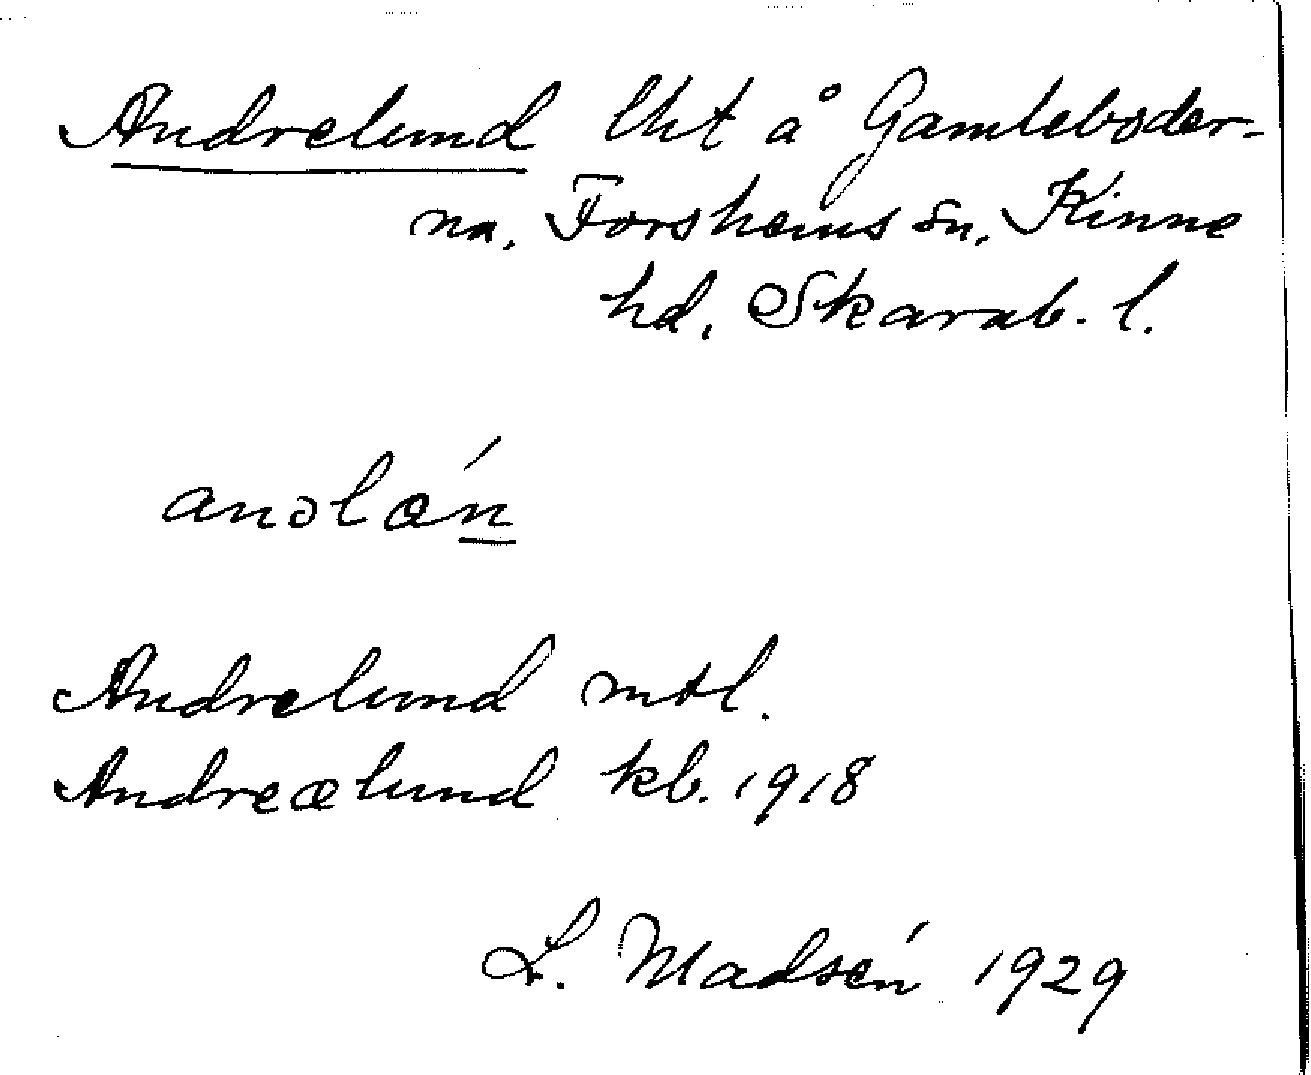 Andrelund lht å Gamleboder-
na, Forshems sn, Kinne
hd, Skarab. l.
Andrelund mtl.
Andreælund kb. 1918
L. Madsén 1929